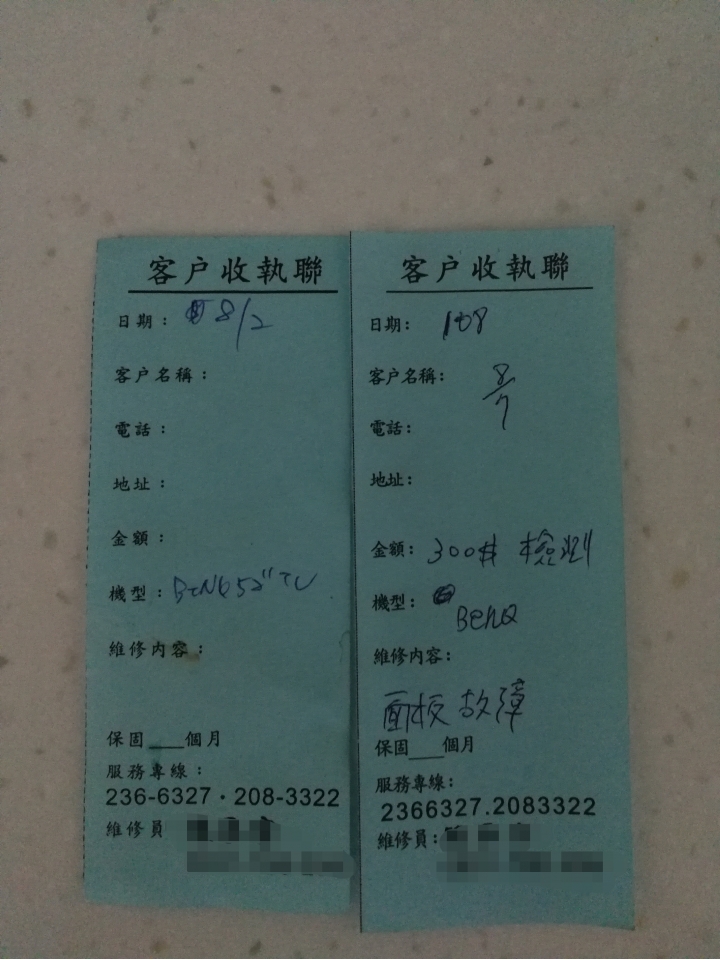 客戶收執聯
日期： 8/2
客戶名稱：
電話：
地址：
金額：
機型：BENQ 52" TV
維修內容：
保固___個月
服務專線：
236-6327·208-3322
維修員
客戶收執聯
日期： 108
客戶名稱： 8/7
電話：
地址：
金額： 300# 檢測
機型： BenQ
維修內容：
面板故障
保固___個月
服務專線：
2366327.2083322
維修員：